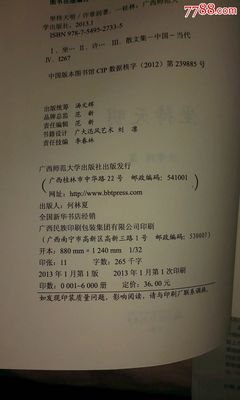 7788.com
图书在版编目
坐待天明 / 许章润著. —桂林: 广西师范大
学出版社, 2013.1
ISBN 978-7-5495-2733-5
Ⅰ. 坐… Ⅱ. 许… Ⅲ. 散文集-中国-当代
Ⅳ. I267
中国版本图书馆 CIP 数据核字 (2012) 第 239885 号
出版统筹 汤文辉
品牌总监 范 新
责任编辑 范 新
书籍设计 广大迅风艺术 刘 凛
责任技编 李春林
广西师范大学出版社出版发行
广西桂林市中华路 22 号 邮政编码: 541001
网址: www.bbtpress.com
出版人: 何林夏
全国新华书店经销
广西民族印刷包装集团有限公司印刷
(广西南宁市高新区高新三路 1 号 邮政编码: 530007)
开本: 880 mm×1 240 mm 1/32
印张: 11 字数: 265 千字
2013 年 1 月第 1 版 2013 年 1 月第 1 次印刷
印数: 0 001~6 000 册 定价: 36.00 元
如发现印装质量问题, 影响阅读, 请与印刷厂联系调换。